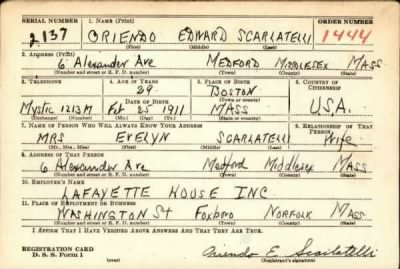 SERIAL NUMBER 1. NAME (Print) ORDER NUMBER
2137 ORIENDO EDWARD SCARLATELLI 1444
(First) (Middle) (Last)
2. ADDRESS (Print)
6 Alexander Ave MEDFORD MIDDLESEX MASS
(Number and street or R. F. D. number) (Town) (County) (State)
3. TELEPHONE 4. AGE IN YEARS 5. PLACE OF BIRTH 6. COUNTRY OF CITIZENSHIP
29 BOSTON
DATE OF BIRTH (Town or county)
Mystic 1213M Feb 25 1911 MASS U.S.A.
(Exchange) (Number) (Mo.) (Day) (Yr.) (State or country)
7. NAME OF PERSON WHO WILL ALWAYS KNOW YOUR ADDRESS 8. RELATIONSHIP OF THAT PERSON
MRS EVELYN SCARLATELLI Wife
(Mr., Mrs., Miss) (First) (Middle) (Last)
9. ADDRESS OF THAT PERSON
6 Alexander Ave Medford Middlesex MASS
(Number and street or R. F. D. number) (Town) (County) (State)
10. EMPLOYER'S NAME
LAFAYETTE HOUSE INC
11. PLACE OF EMPLOYMENT OR BUSINESS
WASHINGTON St Foxboro NORFOLK MASS
(Number and street or R. F. D. number) (Town) (County) (State)
I AFFIRM THAT I HAVE VERIFIED ABOVE ANSWERS AND THAT THEY ARE TRUE.
REGISTRATION CARD
D. S. S. Form 1 (over) Oriendo E. Scarlatelli
(Registrant's signature)